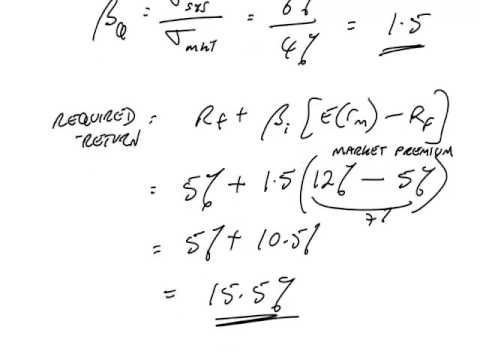 βQ = σsys / σmkt = 6% / 4% = 1.5
REQUIRED -RETURN = Rf + βi [E(rm) − Rf]
MARKET PREMIUM
= 5% + 1.5 (12% − 5%)
7%
= 5% + 10.5%
= 15.5%